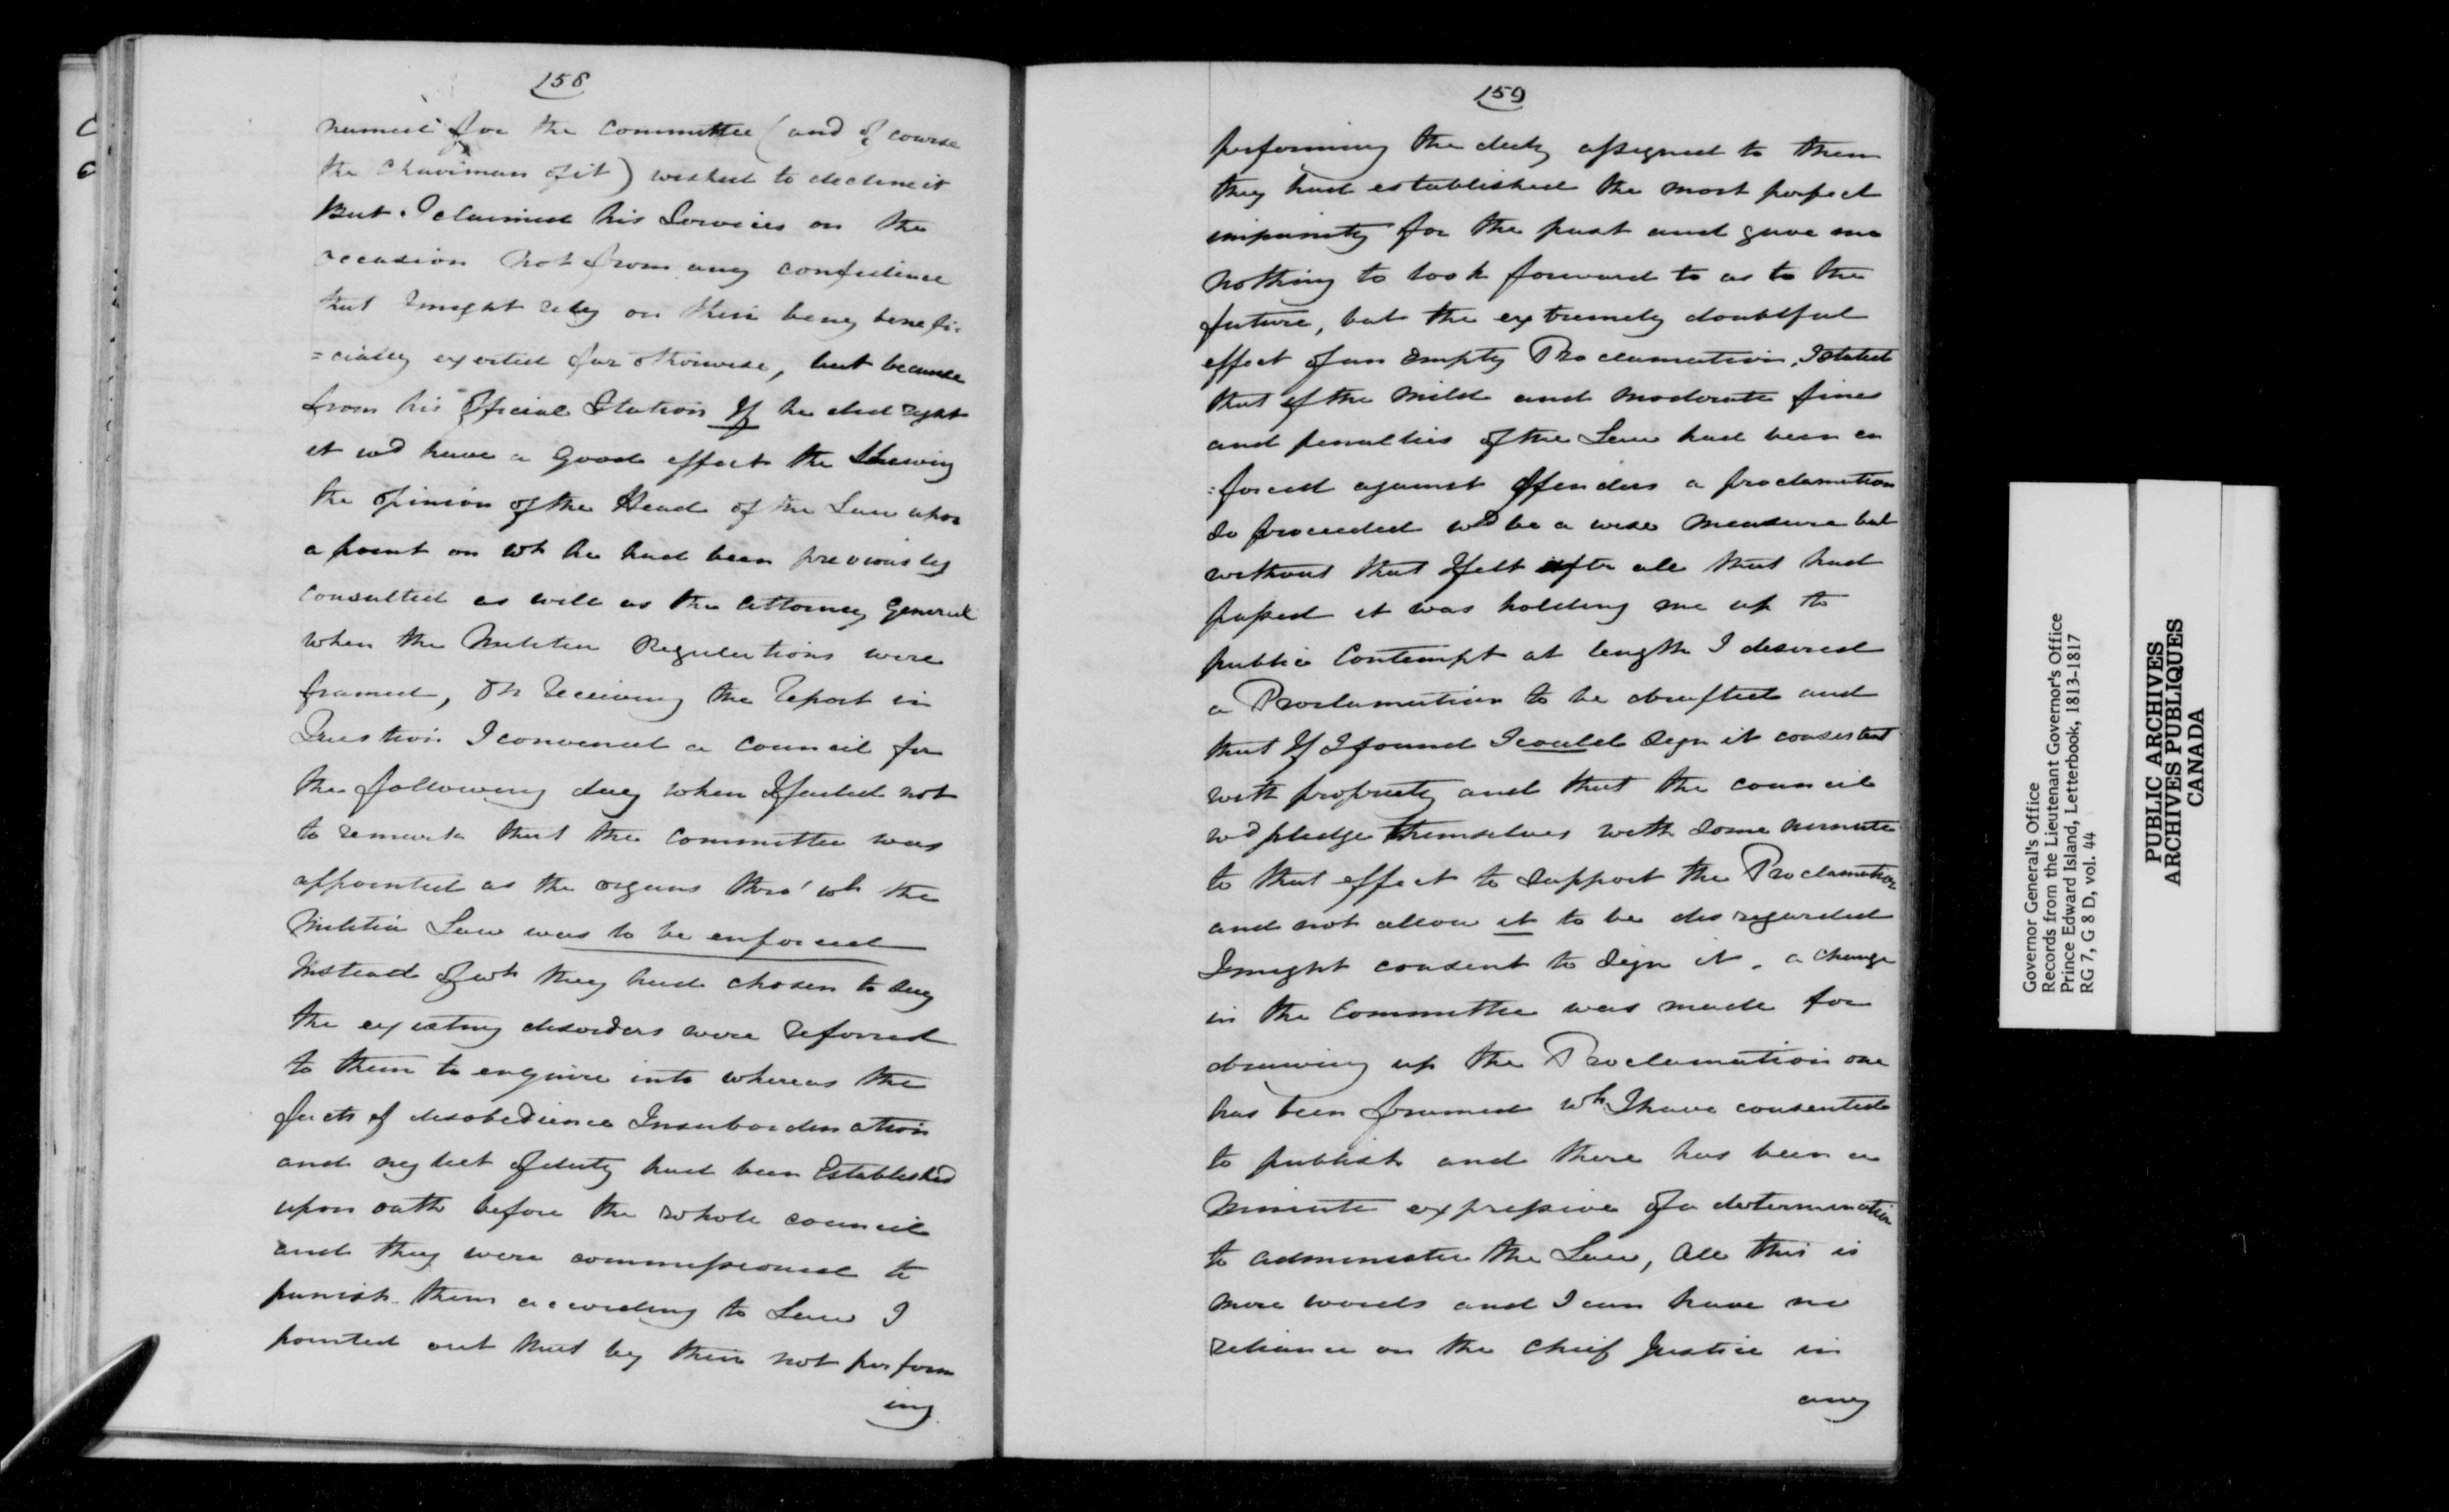 158
named for the Committee (and of course
the Chairman of it) wished to decline it
But I claimed his Services on the
occasion not from any confidence
that I might rely on their being benefi-
=cially exerted far otherwise, but because
from his Official Station If he did right
it wd have a Good effect the Shewing
the Opinion of the Head of the Law upon
a point on wh he had been previously
consulted as well as the Attorney General
when the Militia Regulations were
framed, On receiving the report in
Question I convened a Council for
the following day when I failed not
to remark that the Committee was
appointed as the organs thro' wh the
Militia Law was to be enforced
Instead of wh they had chosen to say
the existing disorders were referred
to them to enquire into whereas the
facts of disobedience Insubordination
and neglect of duty had been Established
upon oath before the whole council
and they were commissioned to
punish them according to Law I
pointed out that by their not perform
ing
159
performing the duty assigned to them
they had established the most perfect
impunity for the past and gave me
nothing to look forward to as to the
future, but the extremely doubtful
effect of an Empty Proclamation, I stated
that if the mild and moderate fines
and penalties of the Law had been en
=forced against Offenders a proclamation
so preceeded wd be a wise measure but
without that I felt after all that had
passed it was holding me up to
public Contempt at length I desired
a Proclamation to be drafted and
that If I found I could sign it consistent
with propriety and that the council
wd pledge themselves with some minute
to that effect to support the Proclamation
and not allow it to be disregarded
I might consent to sign it. a change
in the Committee was made for
drawing up the Proclamation one
has been framed wh I have consented
to publish and there has been a
Minute expressive of a determination
to administer the Law, All this is
mere words and I can have no
reliance on the Chief Justice in
any
Governor General's Office
Records from the Lieutenant Governor's Office
Prince Edward Island, Letterbook, 1813-1817
RG 7, G 8 D, vol. 44
PUBLIC ARCHIVES
ARCHIVES PUBLIQUES
CANADA